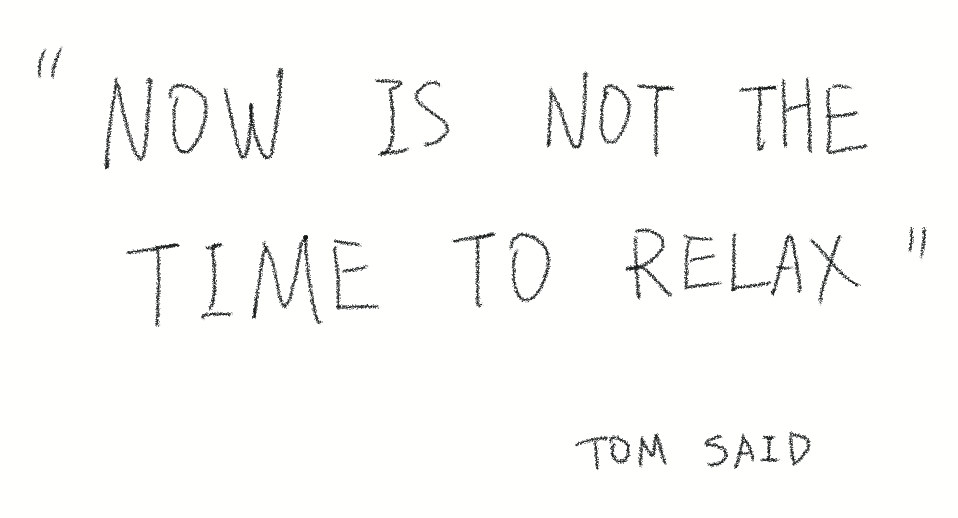 "NOW IS NOT THE
TIME TO RELAX"
TOM SAID